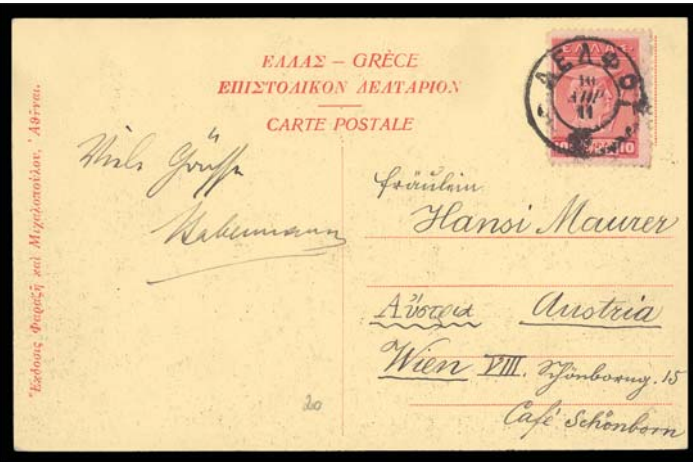 ΕΛΛΑΣ – GRÈCE
ΕΠΙΣΤΟΛΙΚΟΝ ΔΕΛΤΑΡΙΟΝ
CARTE POSTALE
Ἔκδοσις Φαραζῆ καὶ Μιχαλοπούλου, Ἀθῆναι.
ΕΛΛΑΣ
10
ΔΕΛΦΟΙ
10
ΑΠΡ
11
Viele Grüsse
Fräulein
Hansi Maurer
Αὔστρια Austria
Wien VIII. Schönborng. 15
Café Schönborn
20